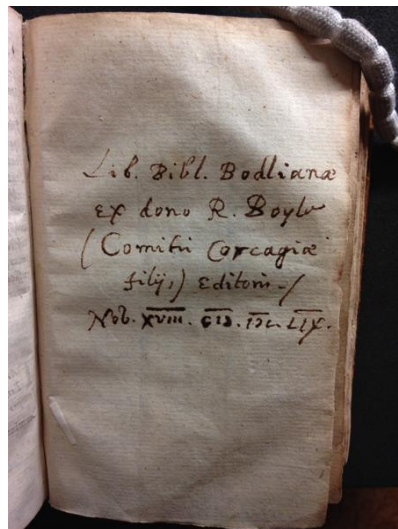 Lib. Bibl. Bodlianæ
ex dono R. Boyle
(Comitis Corcagiæ
filij,) Editoris-/
Nob. XVIII. CIↃ. IↃC. LIX.